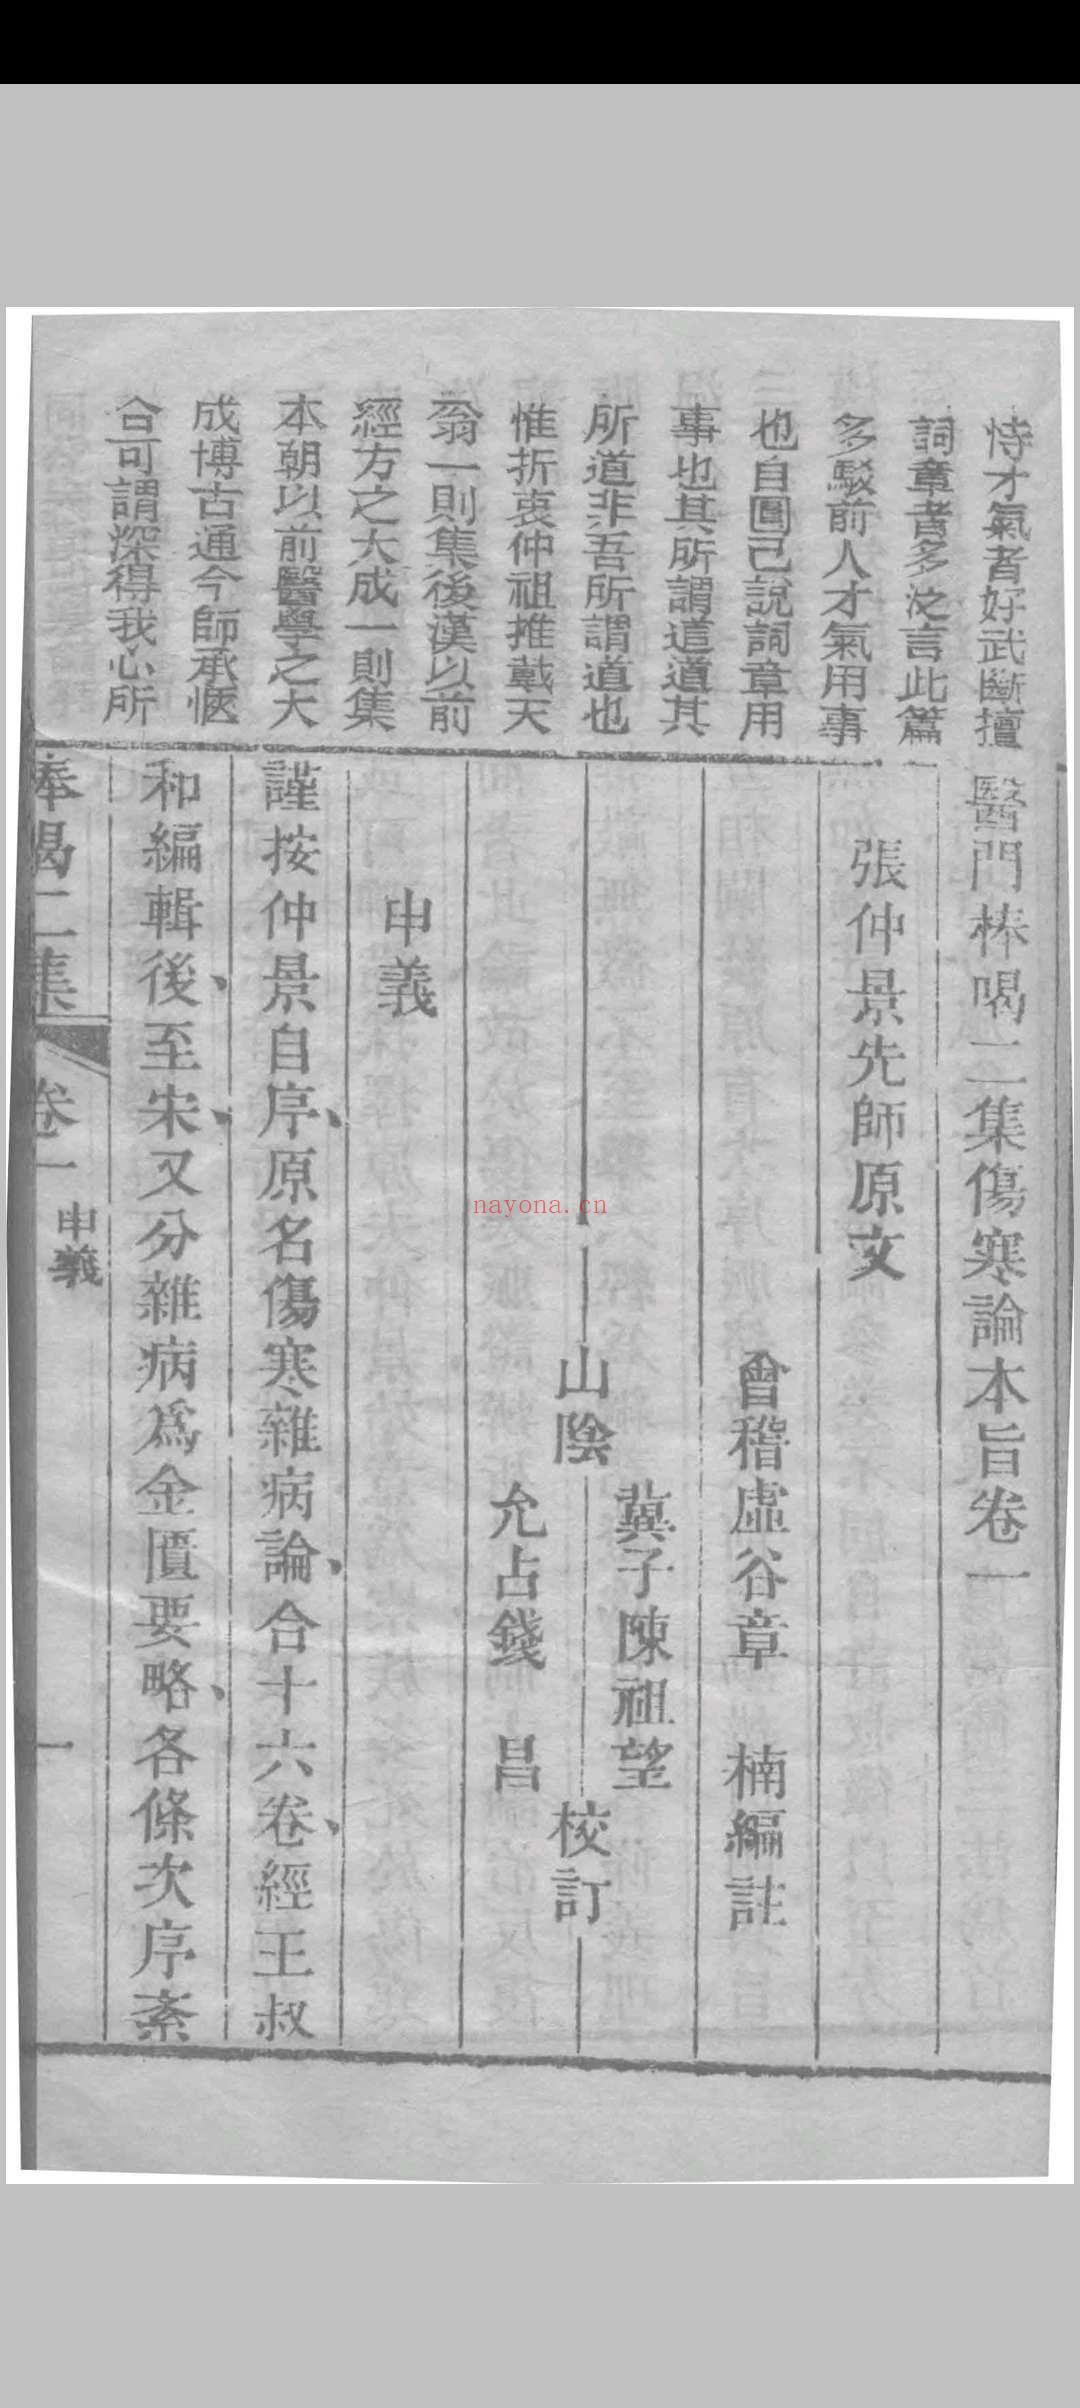 恃才氣者好武斷擅
詞章者多泛言此篇
多駁前人才氣用事
也自圓己說詞章用
事也其所謂道道其
所道非吾所謂道也
惟折衷仲祖推戴天
翁一則集後漢以前
經方之大成一則集
本朝以前醫學之大
成博古通今師承愜
合可謂深得我心所
醫門棒喝二集傷寒論本旨卷一
張仲景先師原文
會稽虛谷章 楠編註
山陰
冀子陳祖望
允占錢 昌
校訂
申義
謹按仲景自序、原名傷寒雜病論、合十六卷、經王叔
和編輯後、至宋、又分雜病爲金匱要略、各條次序紊
棒喝二集 卷一 申義 一
nayona.cn